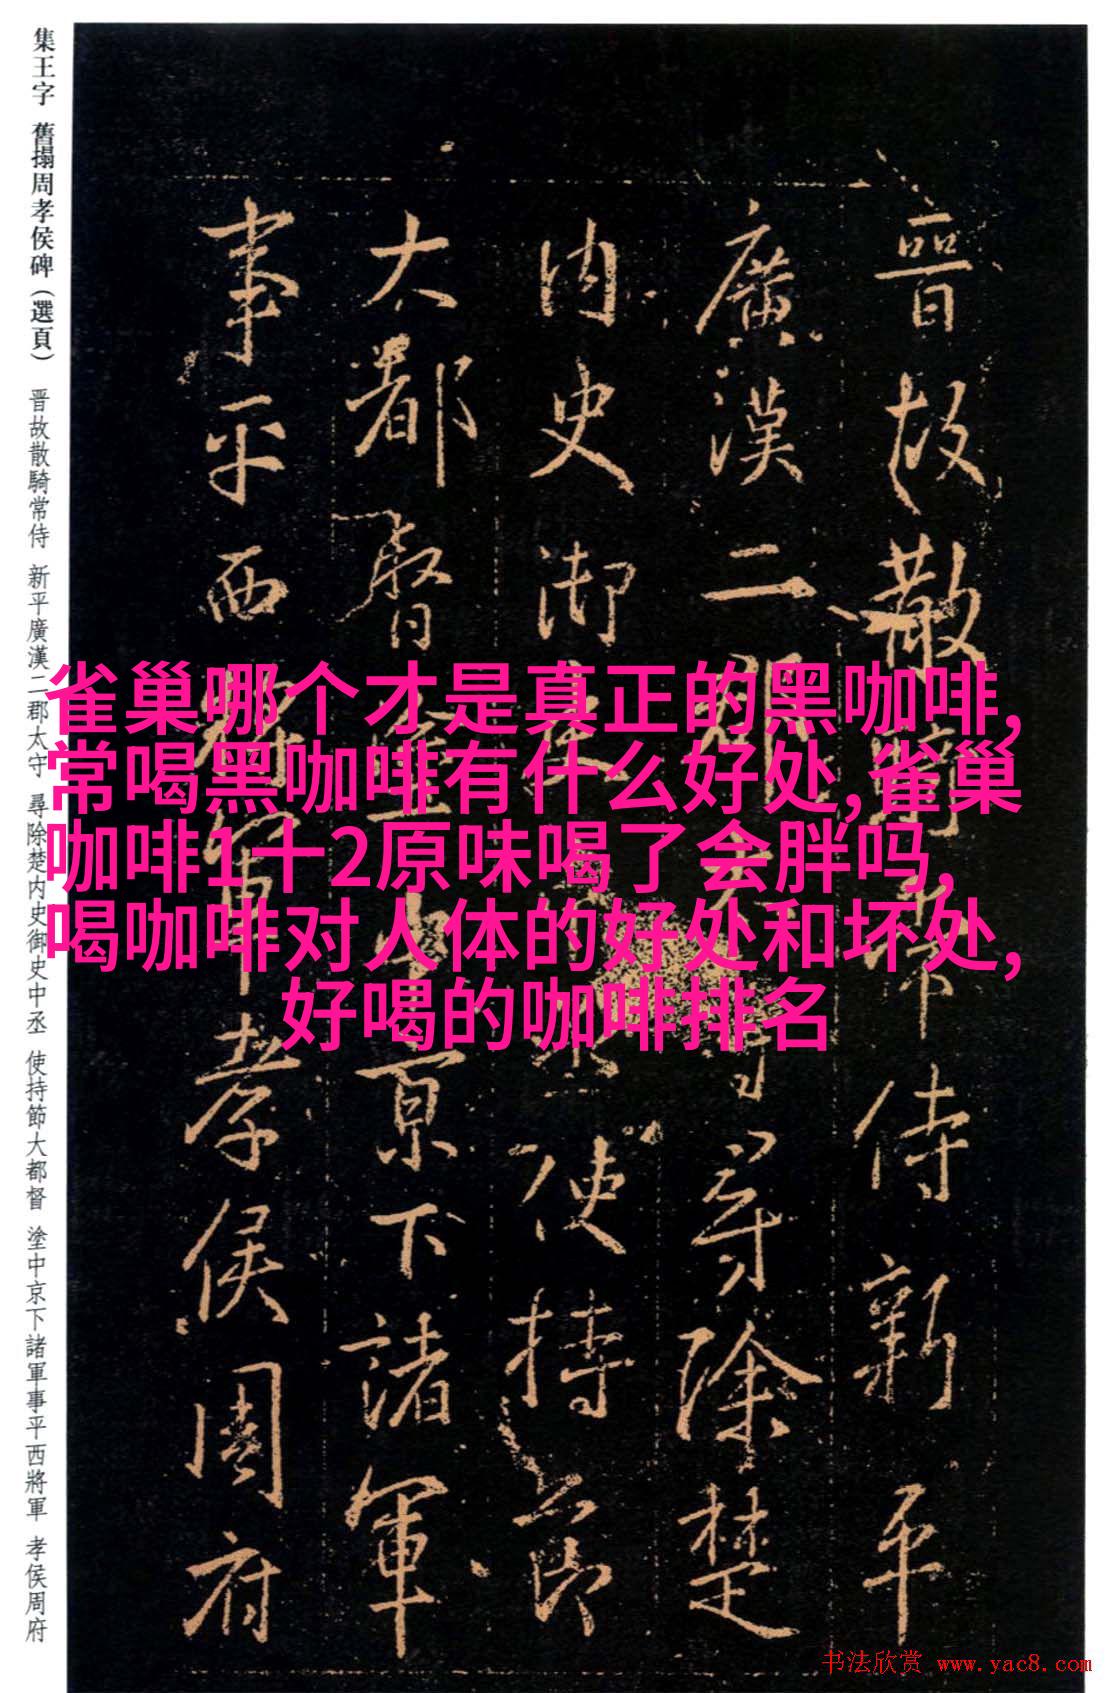 集王字 舊搨周孝侯碑（選頁） 晋故散騎常侍 新平廣漢二郡太守 尋除楚内史御史中丞 使持節大都督 塗中京下諸軍事平西將軍 孝侯周府
晉故散騎常侍新平
廣漢二郡太守尋除楚
内史御史中丞使持節
大都督塗中京下諸軍
事平西將軍孝侯周府
雀巢哪个才是真正的黑咖啡,
常喝黑咖啡有什么好处,雀巢
咖啡1十2原味喝了会胖吗,
喝咖啡对人体的好处和坏处,
好喝的咖啡排名
书法欣赏 www.yac8.com